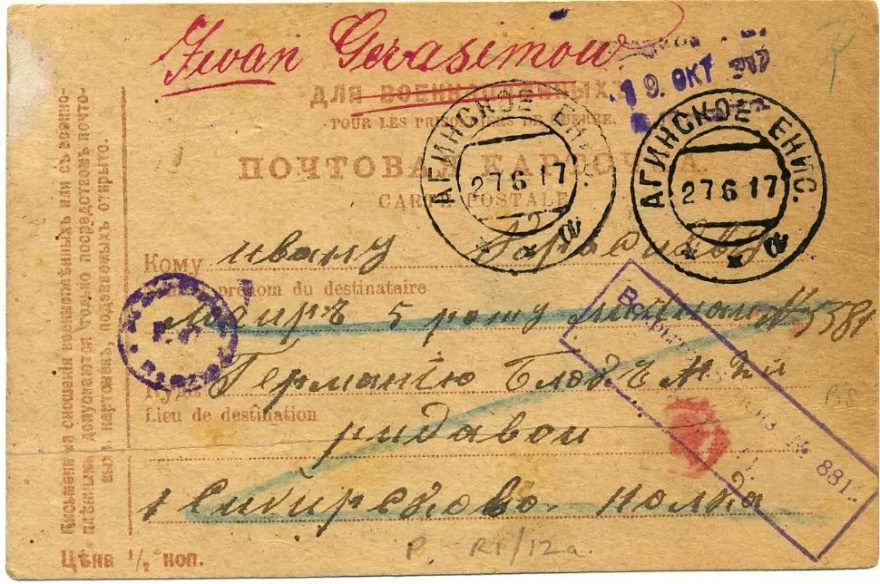 Iwan Gerasimow
19. ОКТ
ДЛЯ ВОЕННОПЛѢННЫХЪ.
POUR LES PRISONNIERS DE GUERRE.
ПОЧТОВАЯ КАРТОЧКА.
CARTE POSTALE
АГИНСКОЕ ЕНИС.
27 6 17
АГИНСКОЕ ЕНИС.
27 6 17
Кому Ивану
Nom et prénom du destinataire
5 роту № 5581
Куда Германію
Lieu de destination
ридавои
1 Сибирсково полка
№ 881.
Письменныя сношенія военноплѣнныхъ или съ военно-
плѣнными допускаются только посредствомъ почто-
выхъ карточекъ, подаваемыхъ открыто.
Цѣна ½ коп.
P. R1/12a